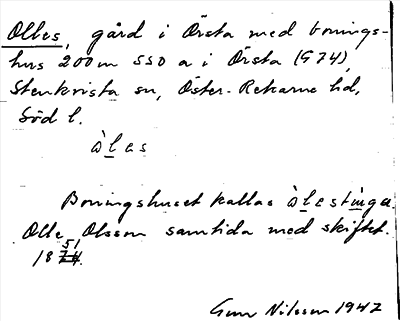 Olles, gård i Örsta med bonings-
hus 200 m SSO a i Örsta (G 74),
Stenkvista sn, Öster-Rekarne hd,
Söd l.
òlas
Boningshuset kallas òlastùga
Olle Olsson samtida med skiftet.
1851.
Gun Nilsson 1947